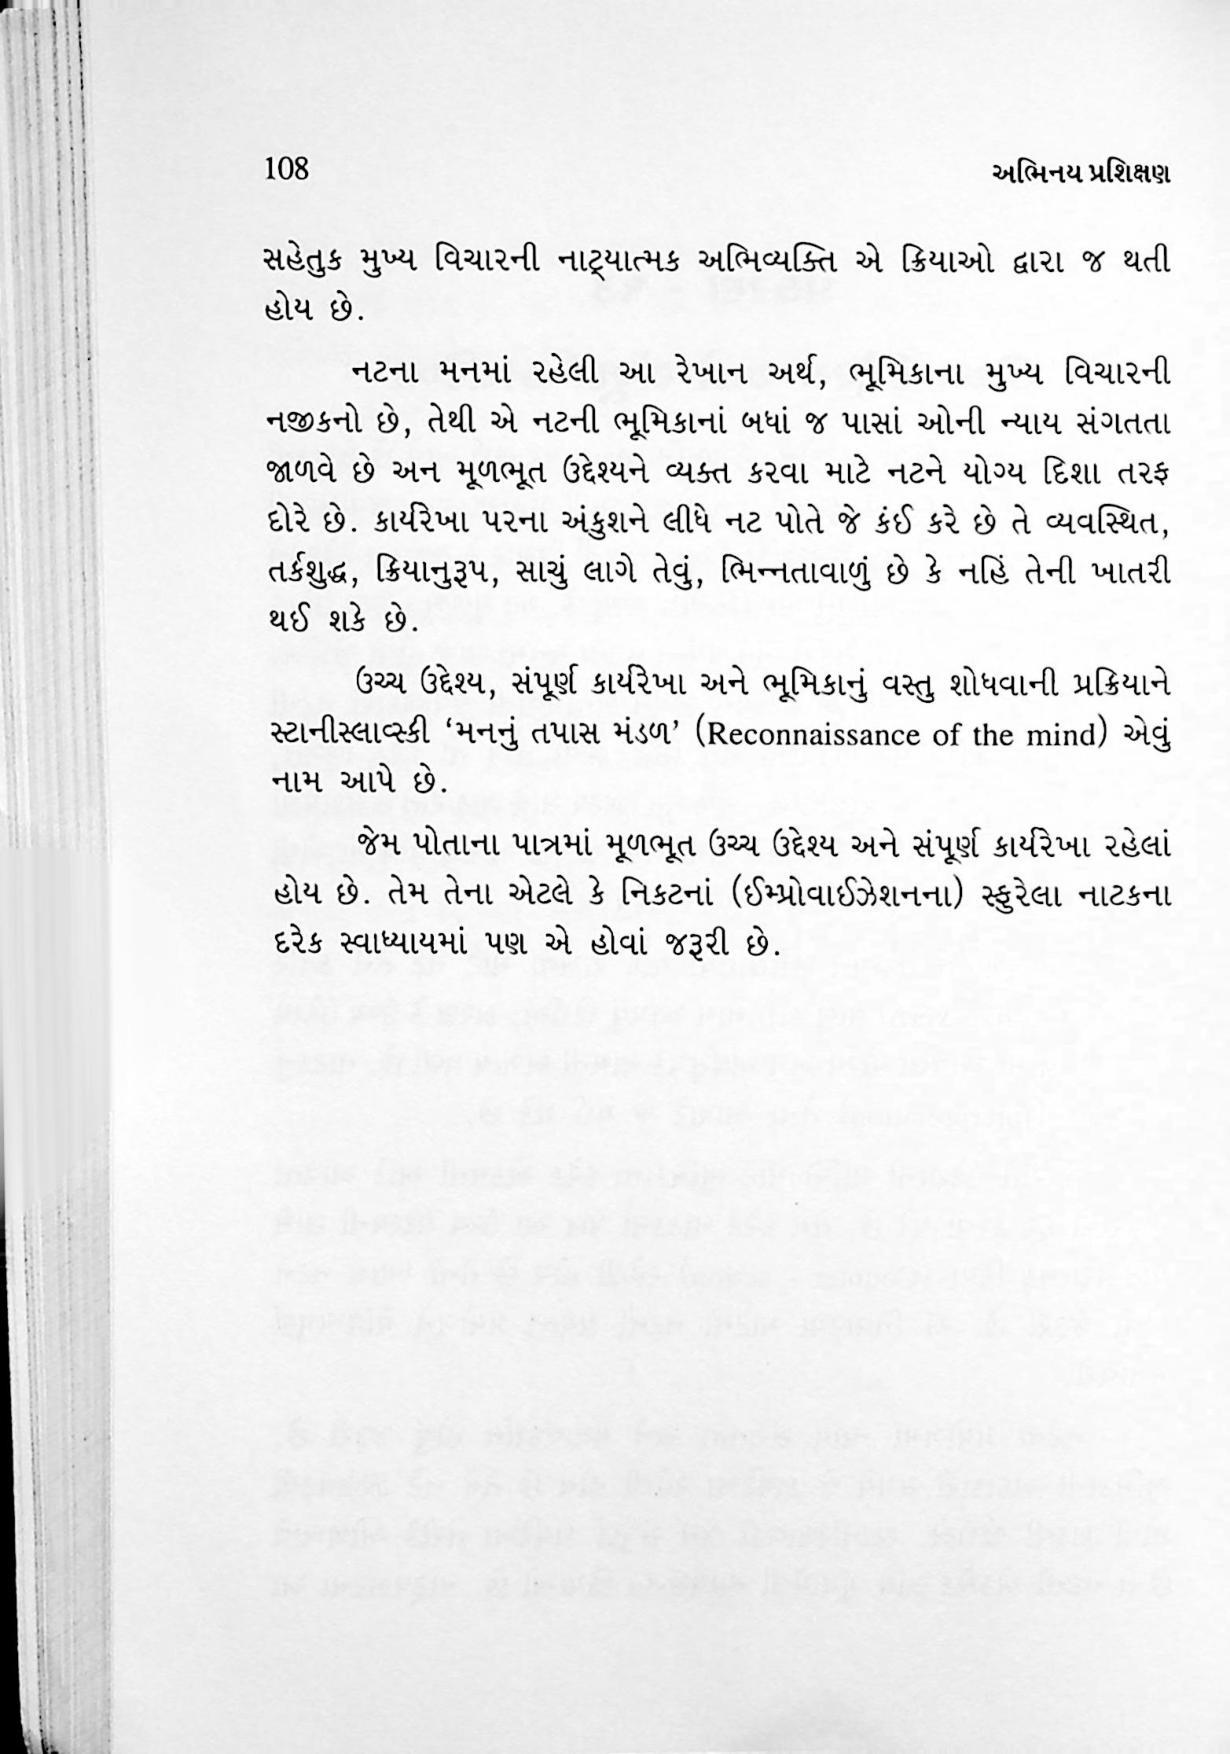 108
અભિનય પ્રશિક્ષણ
સહેતુક મુખ્ય વિચારની નાટ્યાત્મક અભિવ્યક્તિ એ ક્રિયાઓ દ્વારા જ થતી
હોય છે.
નટના મનમાં રહેલી આ રેખાન અર્થ, ભૂમિકાના મુખ્ય વિચારની
નજીકનો છે, તેથી એ નટની ભૂમિકાનાં બધાં જ પાસાં ઓની ન્યાય સંગતતા
જાળવે છે અન મૂળભૂત ઉદ્દેશ્યને વ્યક્ત કરવા માટે નટને યોગ્ય દિશા તરફ
દોરે છે. કાર્યરેખા પરના અંકુશને લીધે નટ પોતે જે કંઈ કરે છે તે વ્યવસ્થિત,
તર્કશુદ્ધ, ક્રિયાનુરૂપ, સાચું લાગે તેવું, ભિન્નતાવાળું છે કે નહિં તેની ખાતરી
થઈ શકે છે.
ઉચ્ચ ઉદ્દેશ્ય, સંપૂર્ણ કાર્યરેખા અને ભૂમિકાનું વસ્તુ શોધવાની પ્રક્રિયાને
સ્ટાનીસ્લાવ્સ્કી ‘મનનું તપાસ મંડળ’ (Reconnaissance of the mind) એવું
નામ આપે છે.
જેમ પોતાના પાત્રમાં મૂળભૂત ઉચ્ચ ઉદ્દેશ્ય અને સંપૂર્ણ કાર્યરેખા રહેલાં
હોય છે. તેમ તેના એટલે કે નિકટનાં (ઈમ્પ્રોવાઈઝેશનના) સ્ફુરેલા નાટકના
દરેક સ્વાધ્યાયમાં પણ એ હોવાં જરૂરી છે.